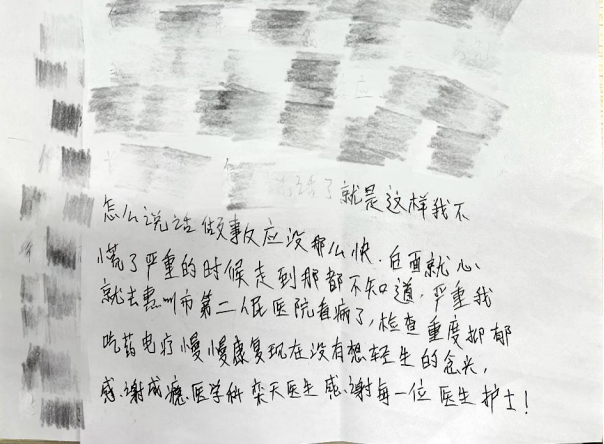 就是这样我不
怎么说话做事反应没那么快.白酒就心
慌了严重的时候走到那都不知道,严重我
就去惠州市第二人民医院看病了,检查重度抑郁
吃药电疗慢慢康复现在没有想轻生的念头,
感谢成瘾医学科栾天医生感谢每一位医生护士!